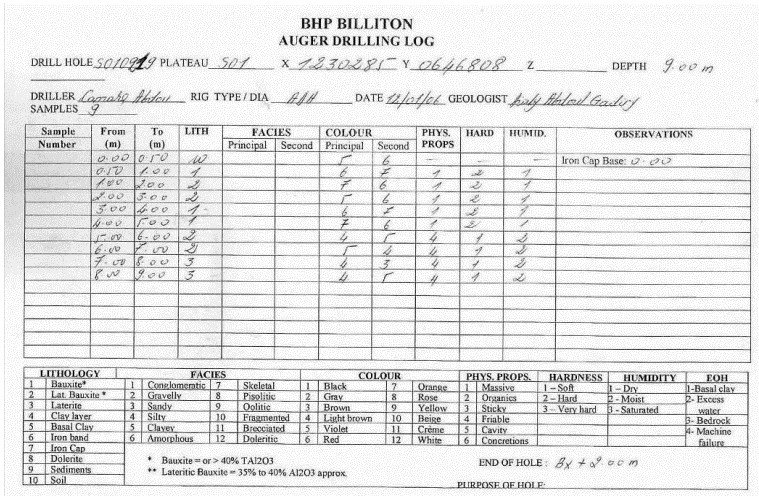 BHP BILLITON
AUGER DRILLING LOG
DRILL HOLE PLATEAU S01 X 1230285 Y 0646808 Z DEPTH 9.00 m
DRILLER RIG TYPE / DIA DATE 12/01/06 GEOLOGIST
SAMPLES 9
Sample From To LITH FACIES COLOUR PHYS. HARD HUMID. OBSERVATIONS
Number (m) (m) Principal Second Principal Second PROPS
0.00 0.50 W 5 6 — — — Iron Cap Base: 0.00
0.50 1.00 1 6 7 1 2 1
1.00 2.00 2 7 6 1 2 1
2.00 3.00 2 5 6 1 2 1
3.00 4.00 1 6 7 1 2 1
4.00 5.00 1 7 6 1 2 1
5.00 6.00 2 4 5 4 1 2
6.00 7.00 2 5 4 4 1 2
7.00 8.00 3 4 3 4 1 2
8.00 9.00 3 4 5 4 1 2
LITHOLOGY FACIES COLOUR PHYS. PROPS. HARDNESS HUMIDITY EOH
1 Bauxite* 1 Conglomeratic 7 Skeletal 1 Black 7 Orange 1 Massive 1 – Soft 1 – Dry 1-Basal clay
2 Lat. Bauxite * 2 Gravelly 8 Pisolitic 2 Gray 8 Rose 2 Organics 2 – Hard 2 - Moist 2- Excess
3 Laterite 3 Sandy 9 Oolitic 3 Brown 9 Yellow 3 Sticky 3 – Very hard 3 - Saturated water
4 Clay layer 4 Silty 10 Fragmented 4 Light brown 10 Beige 4 Friable 3- Bedrock
5 Basal Clay 5 Clayey 11 Brecciated 5 Violet 11 Crème 5 Cavity 4- Machine
6 Iron band 6 Amorphous 12 Doleritic 6 Red 12 White 6 Concretions failure
7 Iron Cap
8 Dolerite * Bauxite = or > 40% TAl2O3 END OF HOLE : Bx + 2.00 m
9 Sediments ** Lateritic Bauxite = 35% to 40% Al2O3 approx.
10 Soil PURPOSE OF HOLE: